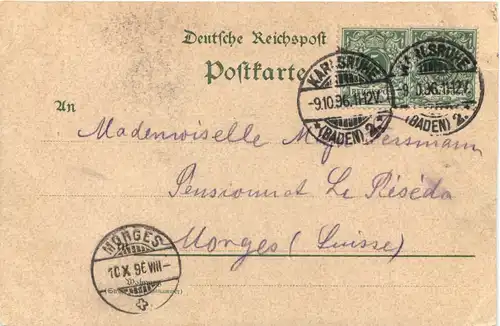 Deutsche Reichspost
Postkarte
KARLSRUHE
-9.10.96.11-12V.
*(BADEN) 2.
KARLSRUHE
-9.10.96.11-12V.
*(BADEN) 2.
An
Madenwiselle
Pensionnat Le Réséda
Morges (Suisse)
MORGES
10 X 96 VIII-